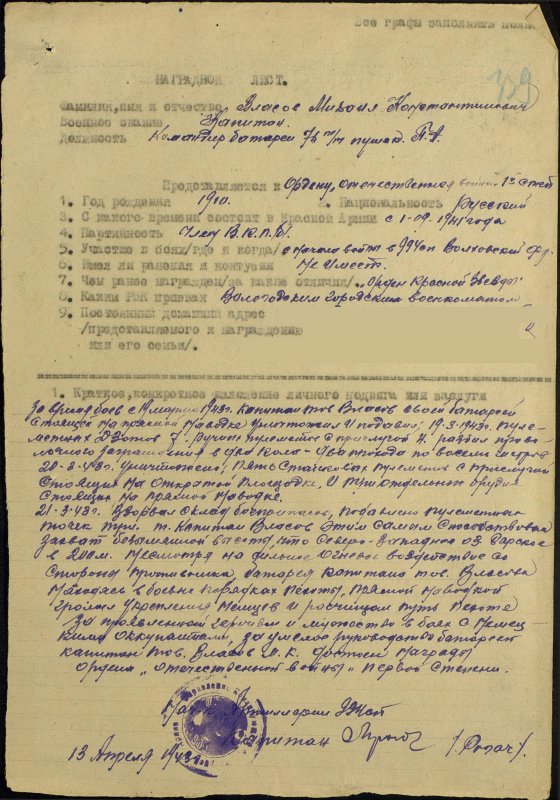 Все графы заполнять
739
НАГРАДНОЙ ЛИСТ.
Фамилия, имя и отчество Власов Михаил Константинович
Военное звание Капитан.
Должность Командир батареи 76 м/м пушек П.А.
Представляется к Ордену, отечественная войны 1й степ
1. Год рождения 1910. 2. Национальность Русский
3. С какого времени состоит в Красной Армии с 1-09-1941 года
4. Партийность Член В.К.П./б/.
5. Участие в боях/где и когда/ с начала войны в 994 сп Волховский фр.
6. Имел ли ранения и контузии Не имеет.
7. Чем ранее награжден/за какие отличия/. Орден Красной Звезды
8. Каким РВК призван Вологодским городским военкоматом
9. Постоянный домашний адрес
/представляемого к награждению
или его семьи/.
1. Краткое, конкретное изложение личного подвига или заслуги
За время боев с марта 1943г. капитан тов Власов своей батареей
стоящей на прямой наводке уничтожил и подавил, 19-3-43г. пуле-
метных Дзотов 7. Ручных пулеметов с прислугой 4. разбил прово-
лочного заграждения в два кола -
20-3-43г. Уничтожено, Пять станковых пулеметов с прислугой
стоящих на открытой площадке, и три отдельных орудия
стоящих на прямой наводке.
21-3-43г. Взорвал склад боеприпасов, подавлено пулеметных
точек три. т. Капитан Власов этим самым способствовал
захват безымянной высоты, что Северо-Западнее оз.
в 200м. Несмотря на сильное огневое воздействие со
стороны противника батарея капитана тов. Власова
находясь в боевых порядках пехоты, прямой наводкой
громила укрепления немцев и расчищала путь пехоте
За проявленный героизм и мужество в боях с немец-
кими оккупантами, за умелое руководство батареей
капитан тов. Власов М.К. достоин награды
Ордена „Отечественной войны" первой степени.
Нач. Артиллерии
Капитан /Рогач/.
13 Апреля 1943г.